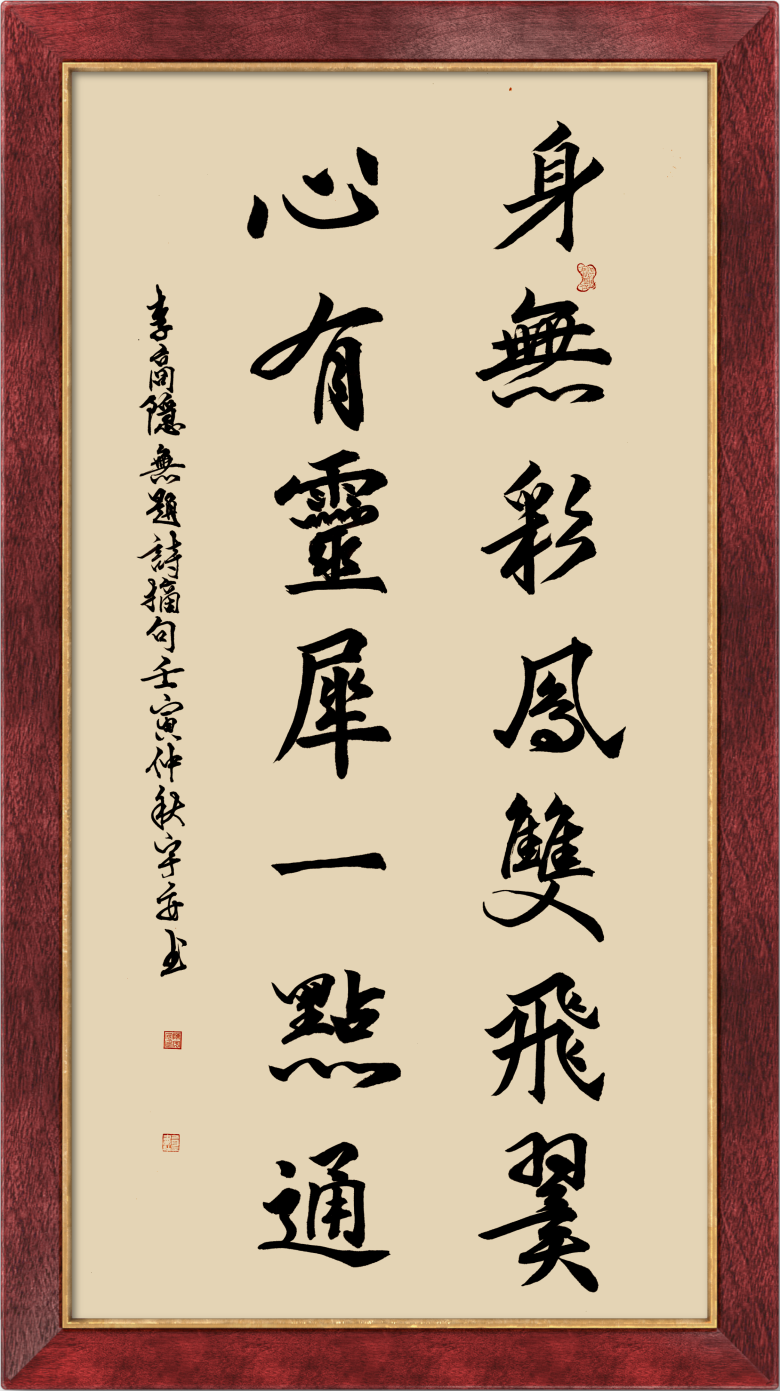 身無彩鳳雙飛翼
心有靈犀一點通
李商隱無題詩摘句壬寅仲秋宇安書